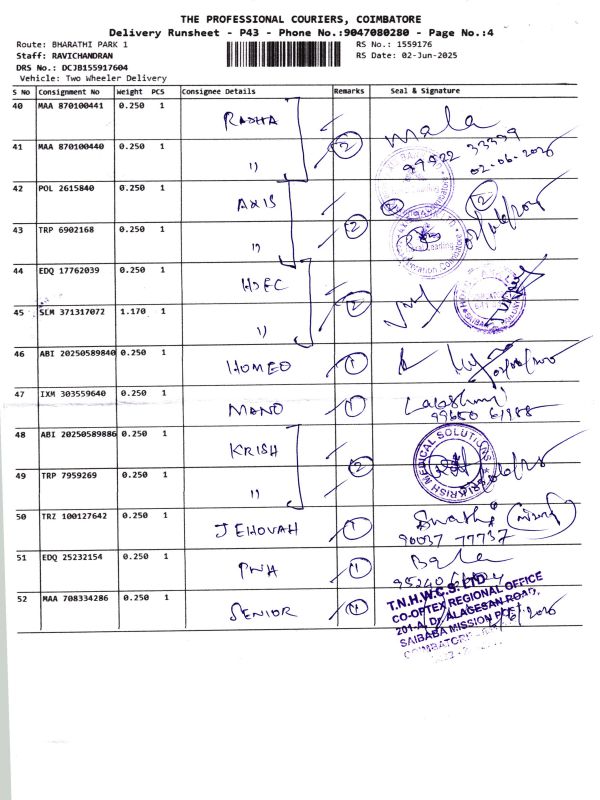 THE PROFESSIONAL COURIERS, COIMBATORE
Delivery Runsheet - P43 - Phone No.:9047080280 - Page No.:4
Route: BHARATHI PARK 1
RS No.: 1559176
Staff: RAVICHANDRAN
RS Date: 02-Jun-2025
DRS No.: DCJB155917604
Vehicle: Two Wheeler Delivery
S No Consignment No Weight PCS Consignee Details Remarks Seal & Signature
40 MAA 870100441 0.250 1 RADHA mala
99922 33399
41 MAA 870100440 0.250 1 11 2 02-06-2025
42 POL 2615840 0.250 1 AXIS 2
43 TRP 6902168 0.250 1 11 2
44 EDQ 17762039 0.250 1 HDFC
45 SLM 371317072 1.170 1 11 2
46 ABI 20250589840 0.250 1 HOMEO 1
47 IXM 303559640 0.250 1 MANO 1 Lakshmi
99650 61988
48 ABI 20250589886 0.250 1 KRISH
KRISH MEDICAL SOLUTIONS
49 TRP 7959269 0.250 1 11 2
50 TRZ 100127642 0.250 1 JEHOVAH 1 Swathi
90037 77737
51 EDQ 25232154 0.250 1 PNH 1 Bala
52 MAA 708334286 0.250 1 SENIOR 1
T.N.H.W.C.S. LTD
CO-OPTEX REGIONAL OFFICE
201-A, Dr. ALAGESAN ROAD,
SAIBABA MISSION POST
COIMBATORE